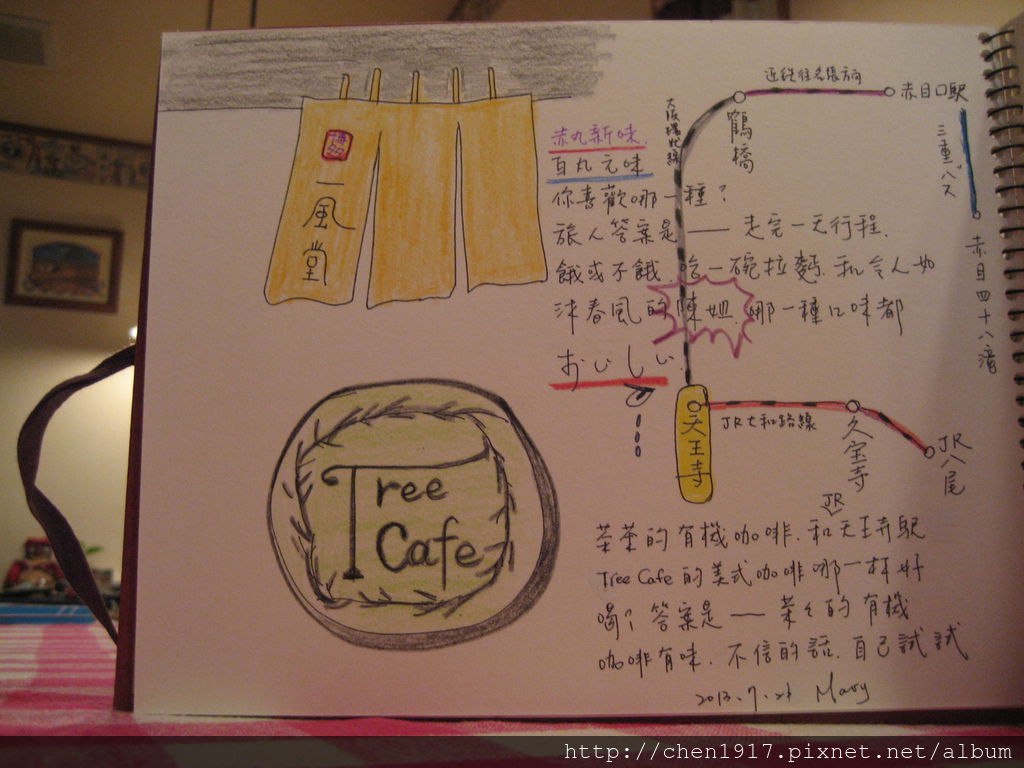 博多
一風堂
赤丸新味.
白丸元味
你喜歡哪一種？
旅人答案是 —— 走完一天行程.
餓或不餓.吃一碗拉麵.和令人如
沐春風的陳姐.哪一種口味都
おいしい.
近鉄往名張方向
赤目口駅
鶴橋
大阪環状線
三重バス
赤目四十八瀧
天王寺
JR大和路線
久宝寺
JR八尾
Tree
Cafe
茶茶的有機咖啡.和JR天王寺駅
Tree Cafe 的美式咖啡哪一杯好
喝? 答案是 —— 茶々的有機
咖啡有味. 不信的話.自己試試
Mary
http://chen1917.pixnet.net/album